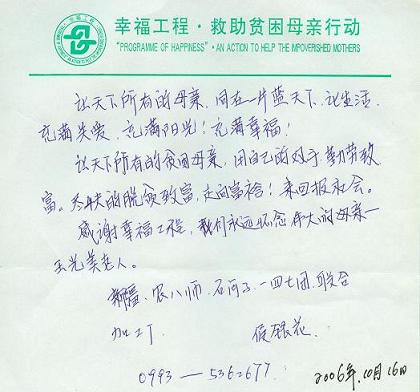 幸福工程·救助贫困母亲行动
"PROGRAMME OF HAPPINESS"·AN ACTION TO HELP THE IMPOVERISHED MOTHERS
让天下所有的母亲，同在一片蓝天下，让生活，
充满关爱，充满阳光！充满幸福！
让天下所有的贫困母亲，用自己的双手，勤劳致
富。尽快的脱贫致富，走向富裕！来回报社会。
感谢幸福工程，我们永远怀念伟大的母亲—
王光美老人。
新疆，农八师，石河子，一四七团，联合
加工厂 侯银花
0993—5362677 2006年.10月16日